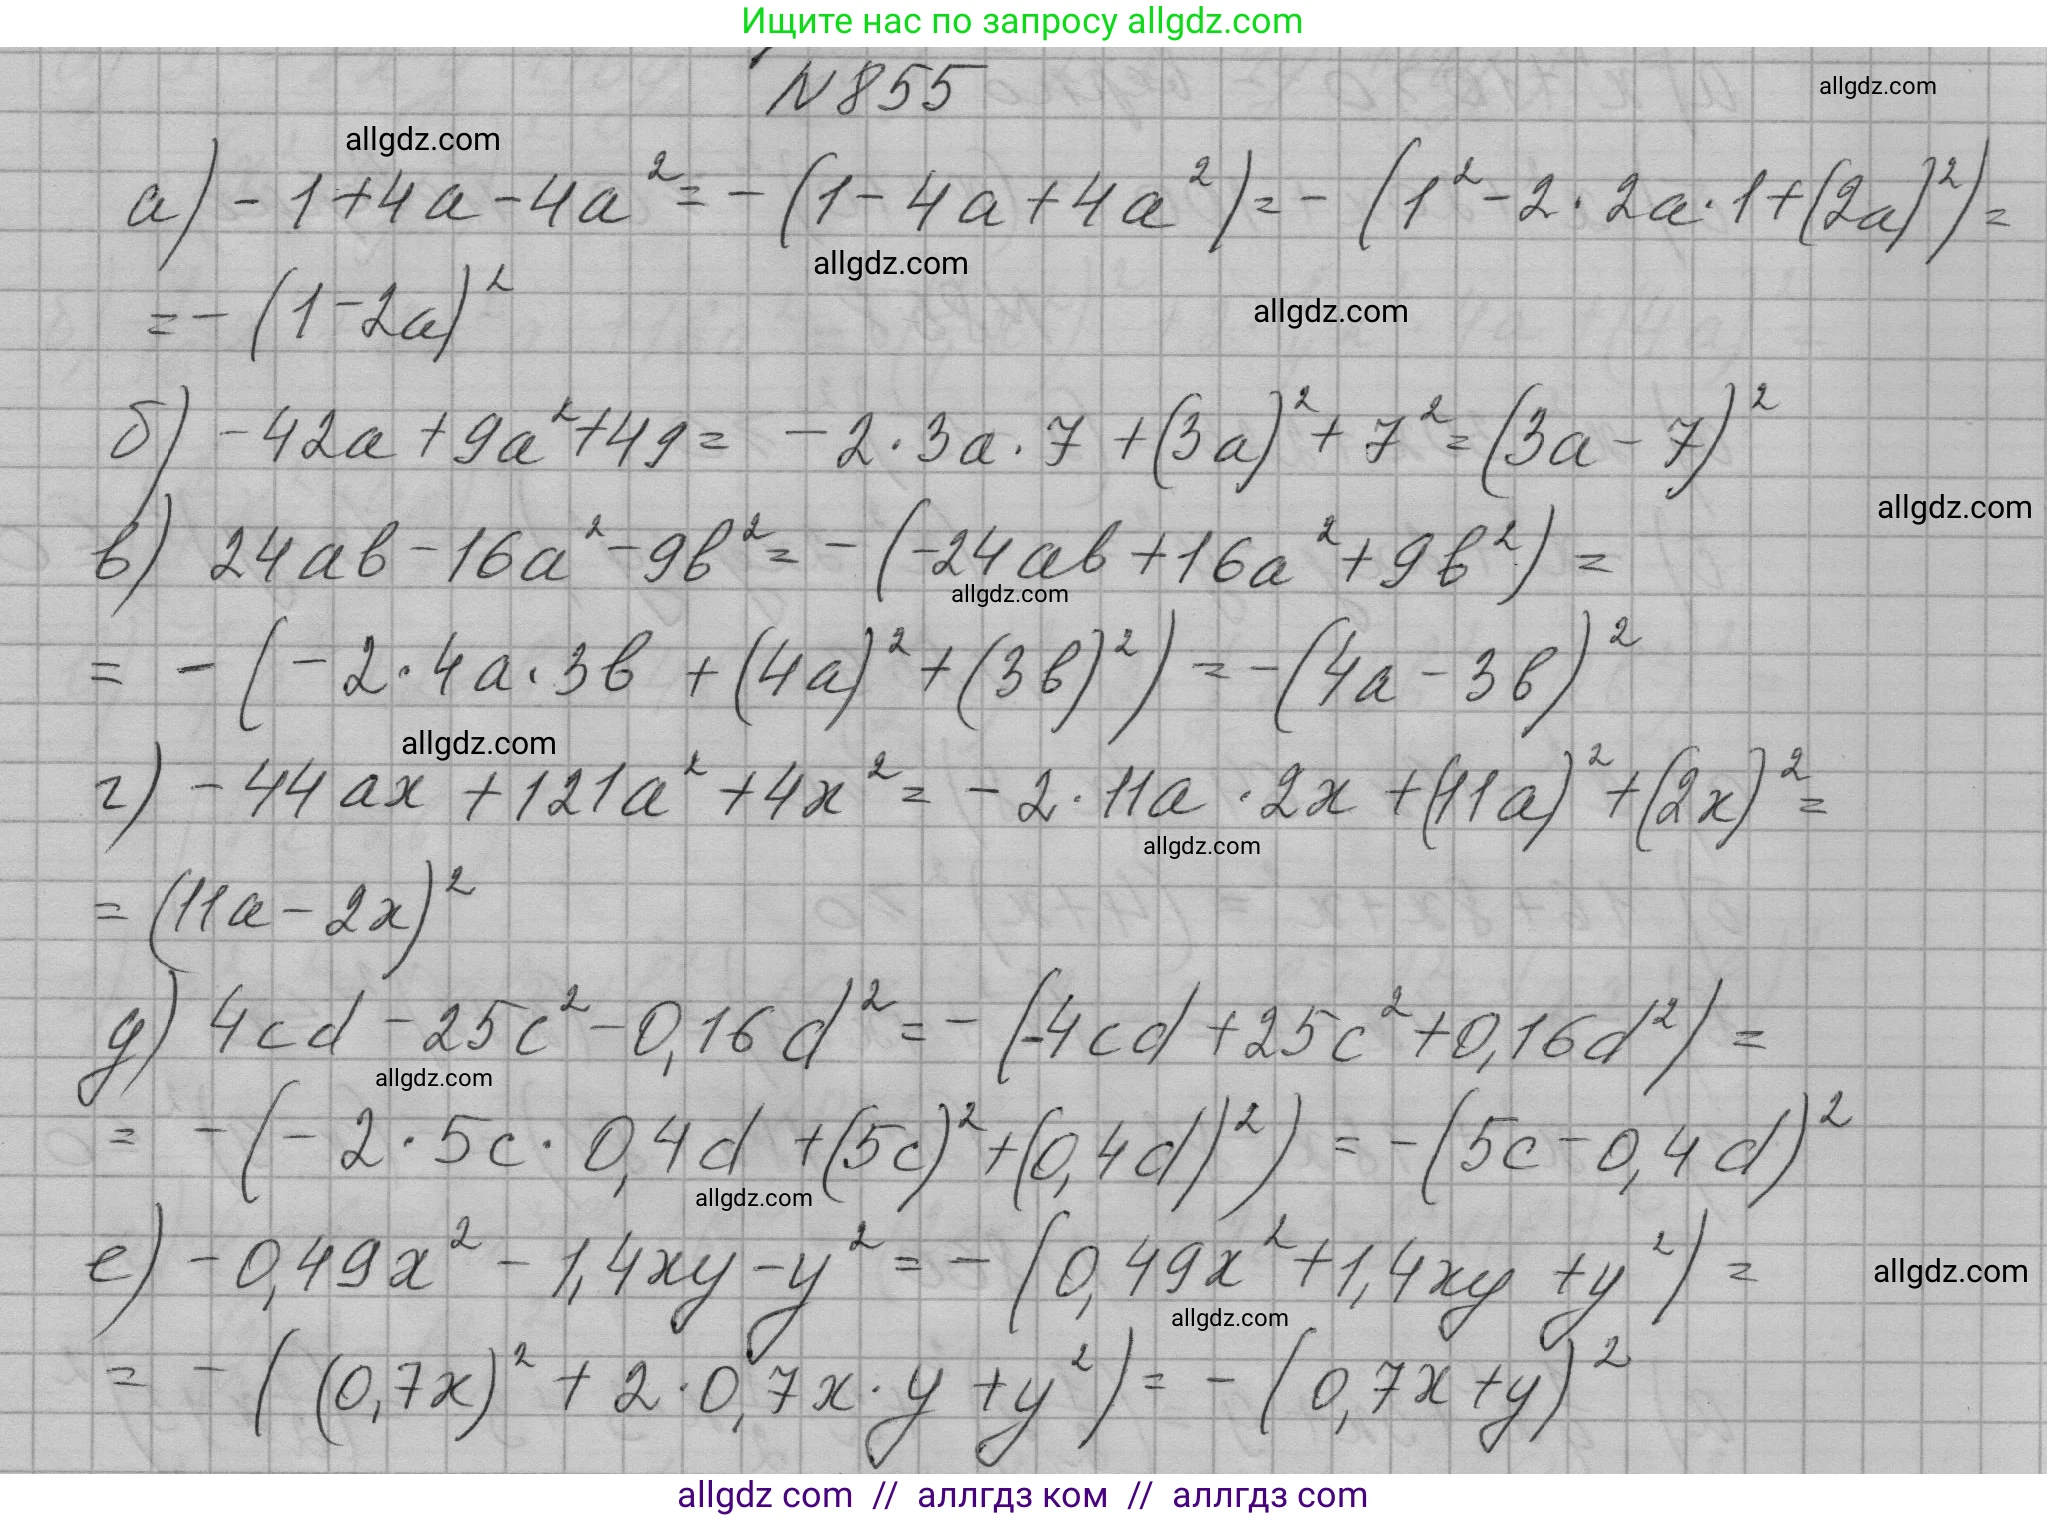 Ищите нас по запросу allgdz.com
N 855
allgdz.com
allgdz.com
а) -1+4a-4a²=-(1-4a+4a²)=-(1²-2·2a·1+(2a)²)=
allgdz.com
=-(1-2a)²
allgdz.com
б) -42a+9a²+49= -2·3a·7+(3a)²+7²=(3a-7)²
allgdz.com
в) 24ab-16a²-9b²=-(-24ab+16a²+9b²)=
allgdz.com
= -(-2·4a·3b+(4a)²+(3b)²)=-(4a-3b)²
allgdz.com
г) -44ax+121a²+4x²=-2·11a·2x+(11a)²+(2x)²=
allgdz.com
=(11a-2x)²
д) 4cd-25c²-0,16d²=-(-4cd+25c²+0,16d²)=
allgdz.com
= -(-2·5c·0,4d+(5c)²+(0,4d)²)=-(5c-0,4d)²
allgdz.com
е) -0,49x²-1,4xy-y²=-(0,49x²+1,4xy+y²)=
allgdz.com
allgdz.com
= -((0,7x)²+2·0,7x·y+y²)=-(0,7x+y)²
allgdz com // аллгдз ком // аллгдз com